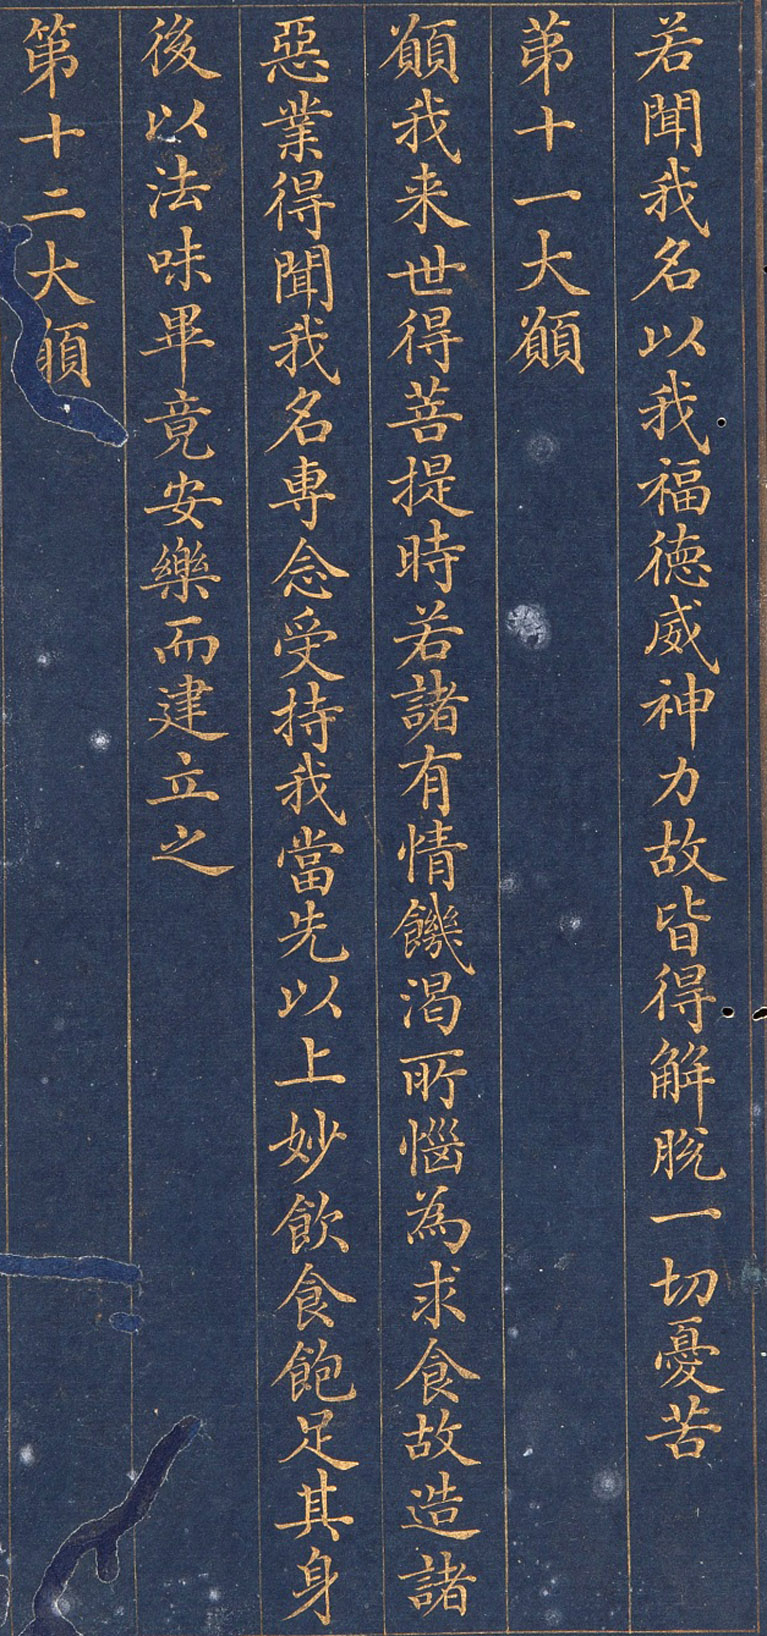 若聞我名以我福德威神力故皆得解脫一切憂苦
苐十一大願
願我来世得菩提時若諸有情饑渴所惱為求食故造諸
惡業得聞我名專念受持我當先以上妙飲食飽足其身
後以法味畢竟安樂而建立之
第十二大願